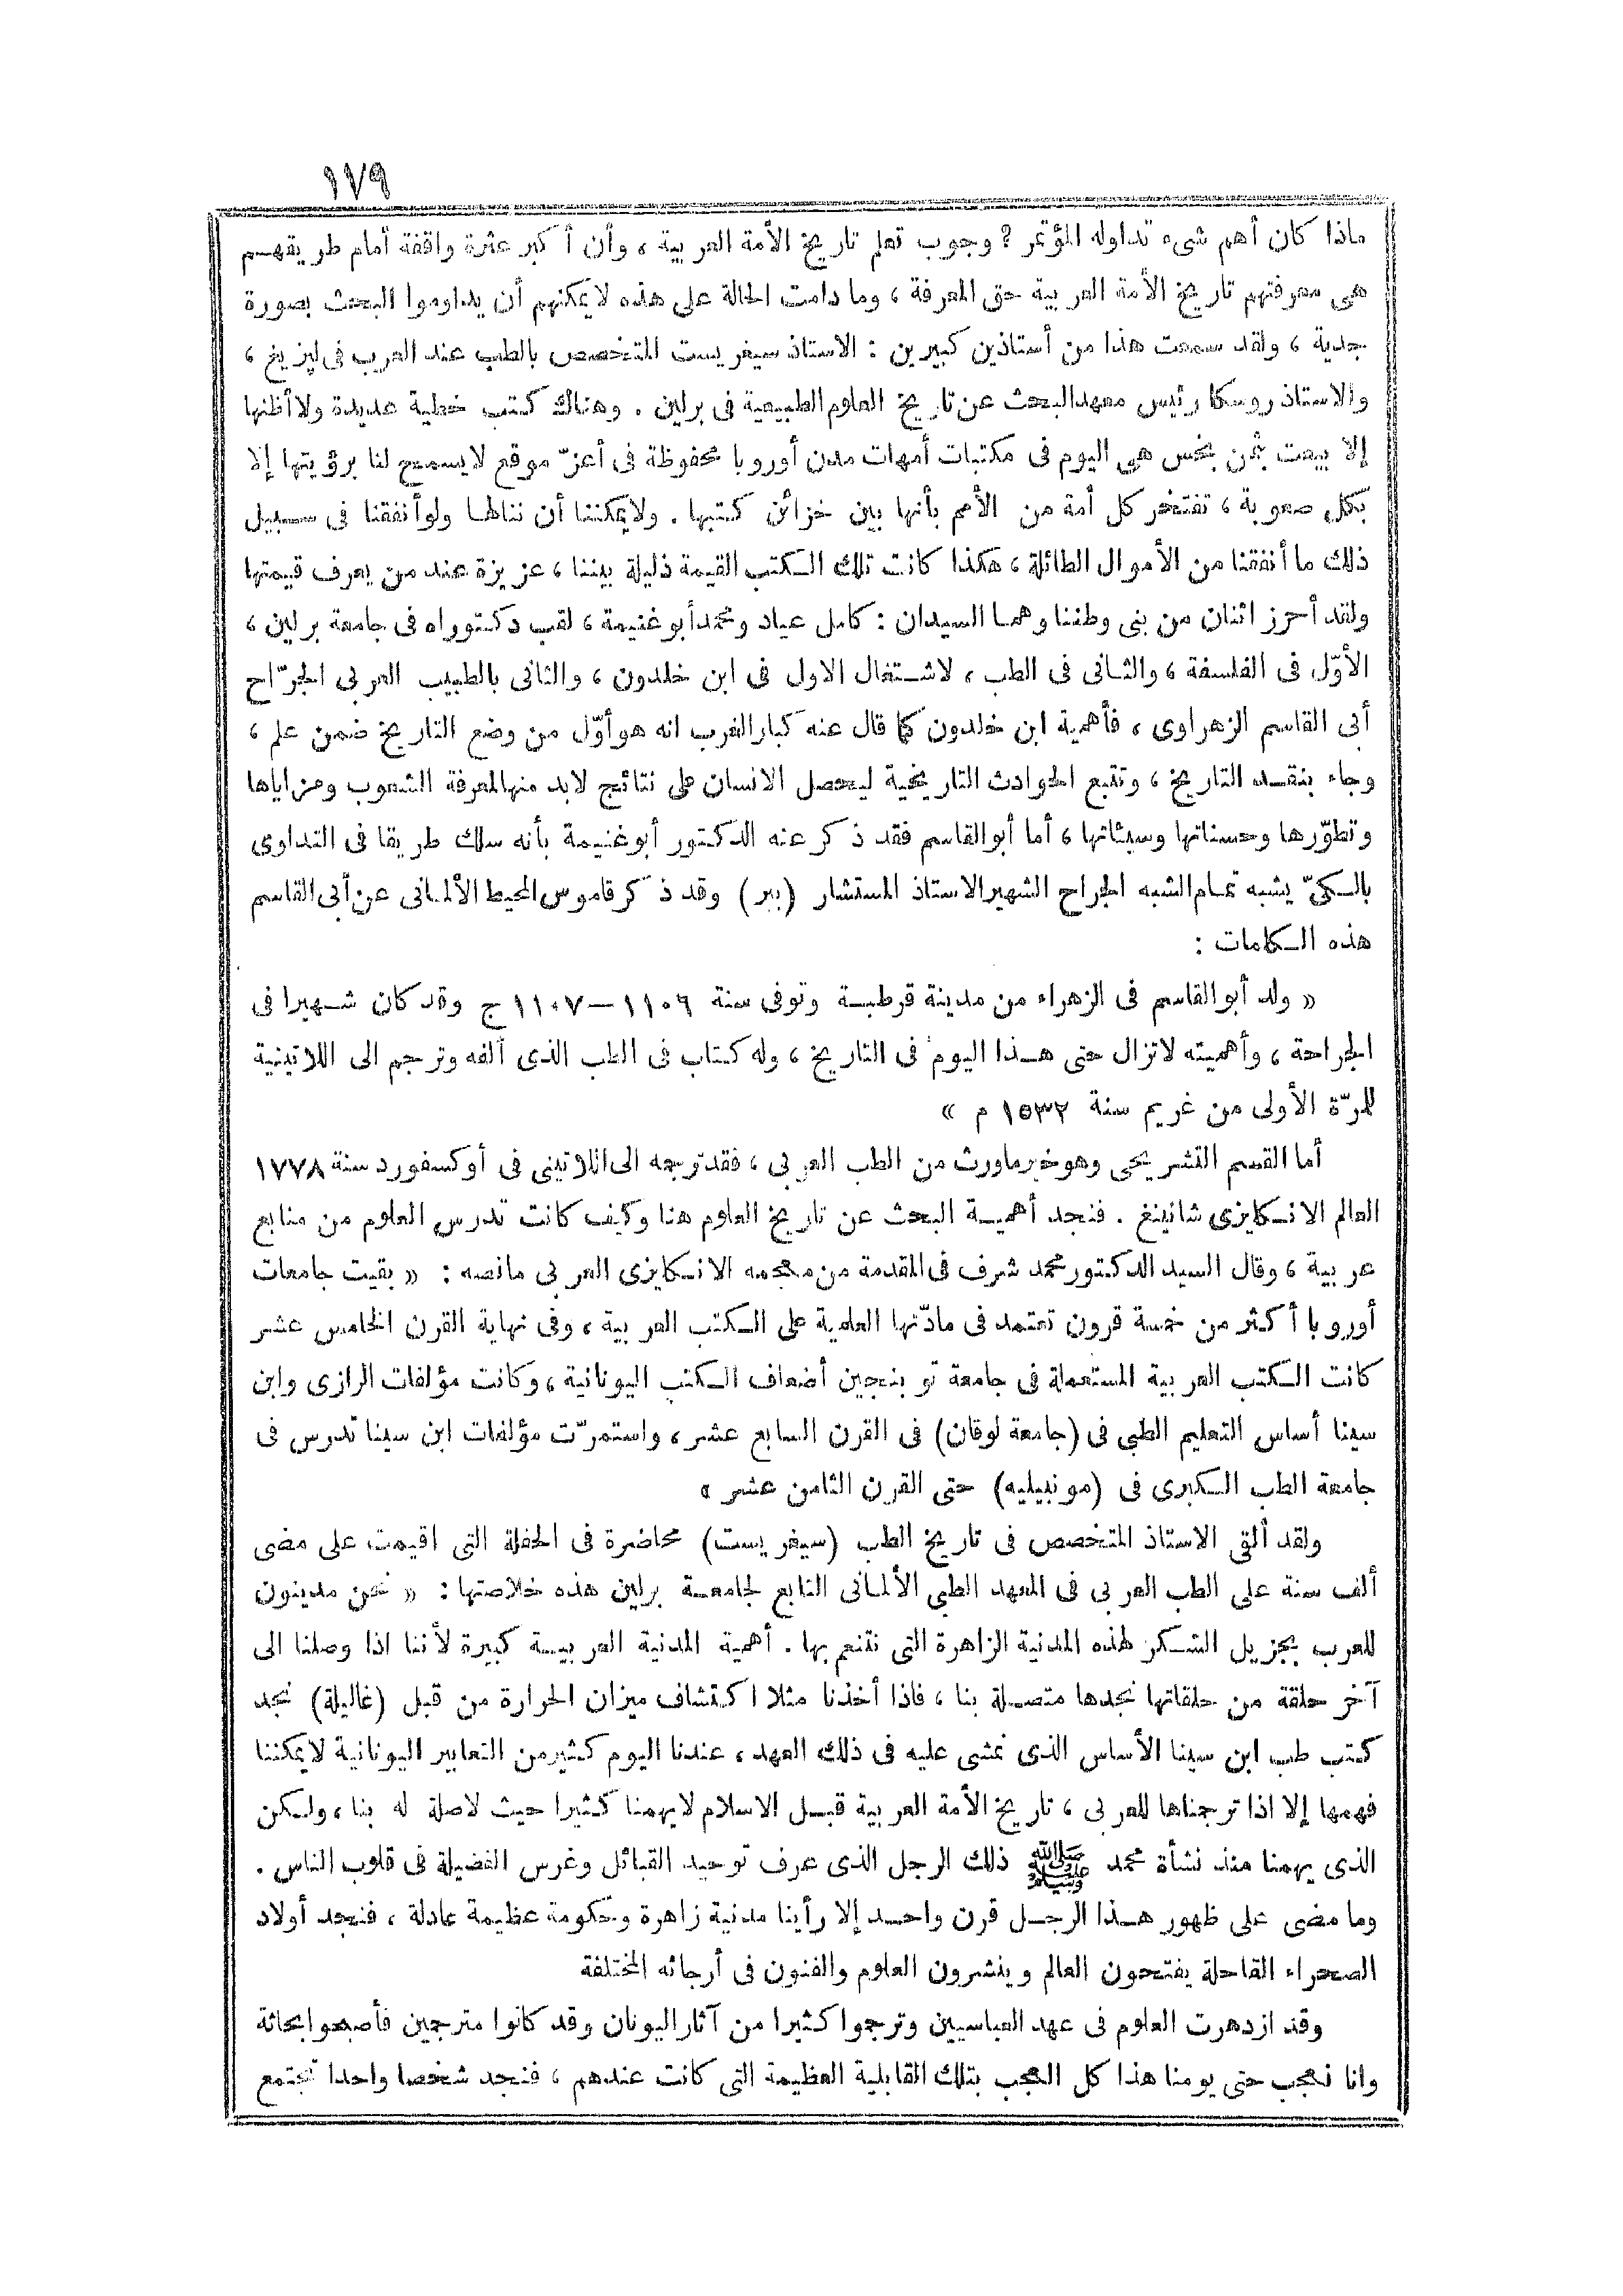 ١٧٩
ماذا كان أهم شىء تداوله المؤتمر ? وجوب تعلم تاريخ الأمة العربية ، وأن أكبر عثرة واقفة أمام طريقهم
هى معرفتهم تاريخ الأمة العربية حق المعرفة ، وما دامت الحالة على هذه لا يمكنهم أن يداوموا البحث بصورة
جدية ، ولقد سمعت هذا من أستاذين كبيرين : الاستاذ سيغريست المتخصص بالطب عند العرب فى ليزيغ ،
والاستاذ روسكا رئيس معهد البحث عن تاريخ العلوم الطبيعية فى برلين . وهناك كتب خطية عديدة ولا أظنها
إلا بيعت بثمن بخس هى اليوم فى مكتبات أمهات مدن أوروبا محفوظة فى أعزّ موقع لايسمح لنا برؤيتها إلا
بكل صعوبة ، تفتخر كل أمة من الأمم بأنها بين خزائن كتبها . ولايمكننا أن ننالها ولو أنفقنا فى سبيل
ذلك ما أنفقنا من الأموال الطائلة ، هكذا كانت تلك الكتب القيمة ذليلة بيننا ، عزيزة عند من يعرف قيمتها
ولقد أحرز اثنان من بنى وطننا وهما السيدان : كامل عياد ومحمد أبو غنيمة ، لقب دكتوراه فى جامعة برلين ،
الأوّل فى الفلسفة ، والثانى فى الطب ، لاشتغال الاول فى ابن خلدون ، والثانى بالطبيب العربى الجرّاح
أبى القاسم الزهراوى ، فأهمية ابن خلدون كما قال عنه كبار الغرب انه هو أوّل من وضع التاريخ ضمن علم ،
وجاء بنقد التاريخ ، وتتبع الحوادث التاريخية ليحصل الانسان على نتائج لابد منها لمعرفة الشعوب ومزاياها
وتطوّرها وحسناتها وسيئاتها ، أما أبوالقاسم فقد ذكر عنه الدكتور أبوغنيمة بأنه سلك طريقا فى التداوى
بالكىّ يشبه تمام الشبه الجراح الشهير الاستاذ المستشار (بير) وقد ذكر قاموس المحيط الألمانى عن أبى القاسم
هذه الكلمات :
« ولد أبوالقاسم فى الزهراء من مدينة قرطبة وتوفى سنة ١١٠٦ – ١١٠٧ ج وقد كان شهيرا فى
الجراحة ، وأهميته لاتزال حتى هذا اليوم فى التاريخ ، وله كتاب فى الطب الذى ألفه وترجم الى اللاتينية
للمرّة الأولى من غريم سنة ١٥٣٢ م »
أما القسم التشريحى وهو خير ماورث من الطب العربى ، فقد ترجمه الى اللاتينى فى أوكسفورد سنة ١٧٧٨
العالم الانكليزى شانينغ . فنجد أهمية البحث عن تاريخ العلوم هنا وكيف كانت تدرس العلوم من منابع
عربية ، وقال السيد الدكتور محمد شرف فى المقدمة من معجمه الانكليزى العربى مانصه : « بقيت جامعات
أوروبا أكثر من خمسة قرون تعتمد فى مادّتها العلمية على الكتب العربية ، وفى نهاية القرن الخامس عشر
كانت الكتب العربية المستعملة فى جامعة توبنجين أضعاف الكتب اليونانية ، وكانت مؤلفات الرازى وابن
سينا أساس التعليم الطبى فى (جامعة لوفان) فى القرن السابع عشر ، واستمرّت مؤلفات ابن سينا تدرس فى
جامعة الطب الكبرى فى (مونبيليه) حتى القرن الثامن عشر »
ولقد ألقى الاستاذ المتخصص فى تاريخ الطب (سيغريست) محاضرة فى الحفلة التى اقيمت على مضى
ألف سنة على الطب العربى فى المعهد الطبى الألمانى التابع لجامعة برلين هذه خلاصتها : « نحن مدينون
للعرب بجزيل الشكر لهذه المدنية الزاهرة التى نتنعم بها . أهمية المدنية العربية كبيرة لأننا اذا وصلنا الى
آخر حلقة من حلقاتها نجدها متصلة بنا ، فاذا أخذنا مثلا اكتشاف ميزان الحرارة من قبل (غاليلة) نجد
كتب طب ابن سينا الأساس الذى نمشى عليه فى ذلك العهد ، عندنا اليوم كثير من التعابير اليونانية لايمكننا
فهمها إلا اذا ترجمناها للعربى ، تاريخ الأمة العربية قبل الاسلام لايهمنا كثيرا حيث لاصلة له بنا ، ولكن
الذى يهمنا منذ نشأة محمد ﷺ ذلك الرجل الذى عرف توحيد القبائل وغرس الفضيلة فى قلوب الناس .
وما مضى على ظهور هذا الرجل قرن واحد إلا رأينا مدنية زاهرة وحكومة عظيمة عادلة ، فنجد أولاد
الصحراء القاحلة يفتحون العالم وينشرون العلوم والفنون فى أرجائه المختلفة
وقد ازدهرت العلوم فى عهد العباسيين وترجموا كثيرا من آثار اليونان وقد كانوا مترجمين فأصبحوا بحاثة
وانا نعجب حتى يومنا هذا كل العجب بتلك القابلية العظيمة التى كانت عندهم ، فنجد شخصا واحدا تجتمع